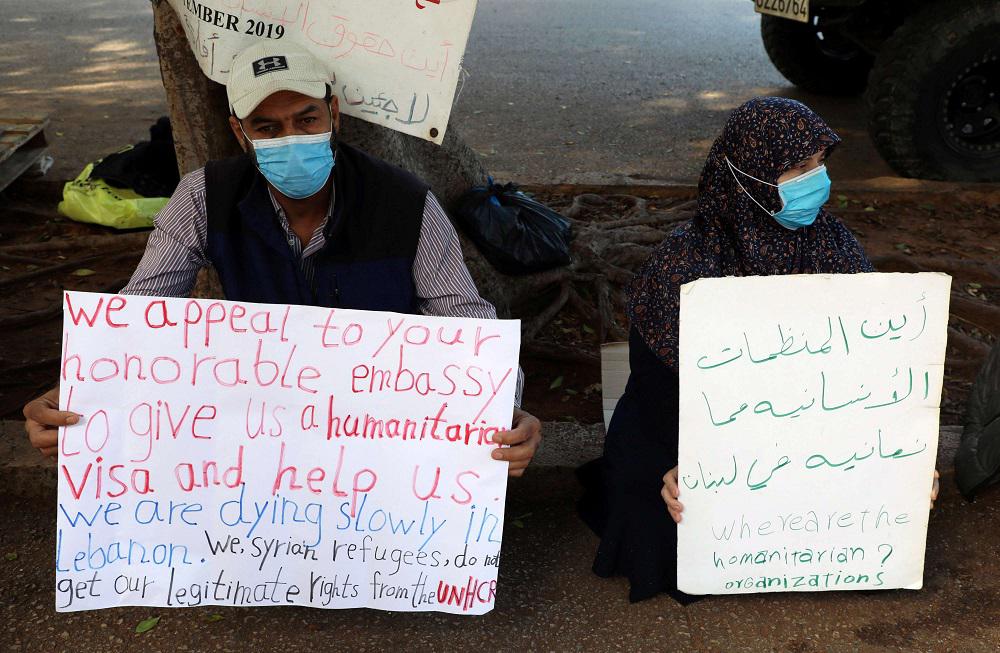 TEMBER 2019
أين حقوق
لاجئين
we appeal to your
honorable embassy
to give us a humanitarian
visa and help us.
we are dying slowly in
Lebanon. We, syrian refugees, do not
get our legitimate rights from the UNHCR
أين المنظمات
الأنسانيه مما
نعانيه في لبنان
where are the
humanitarian ?
organizations